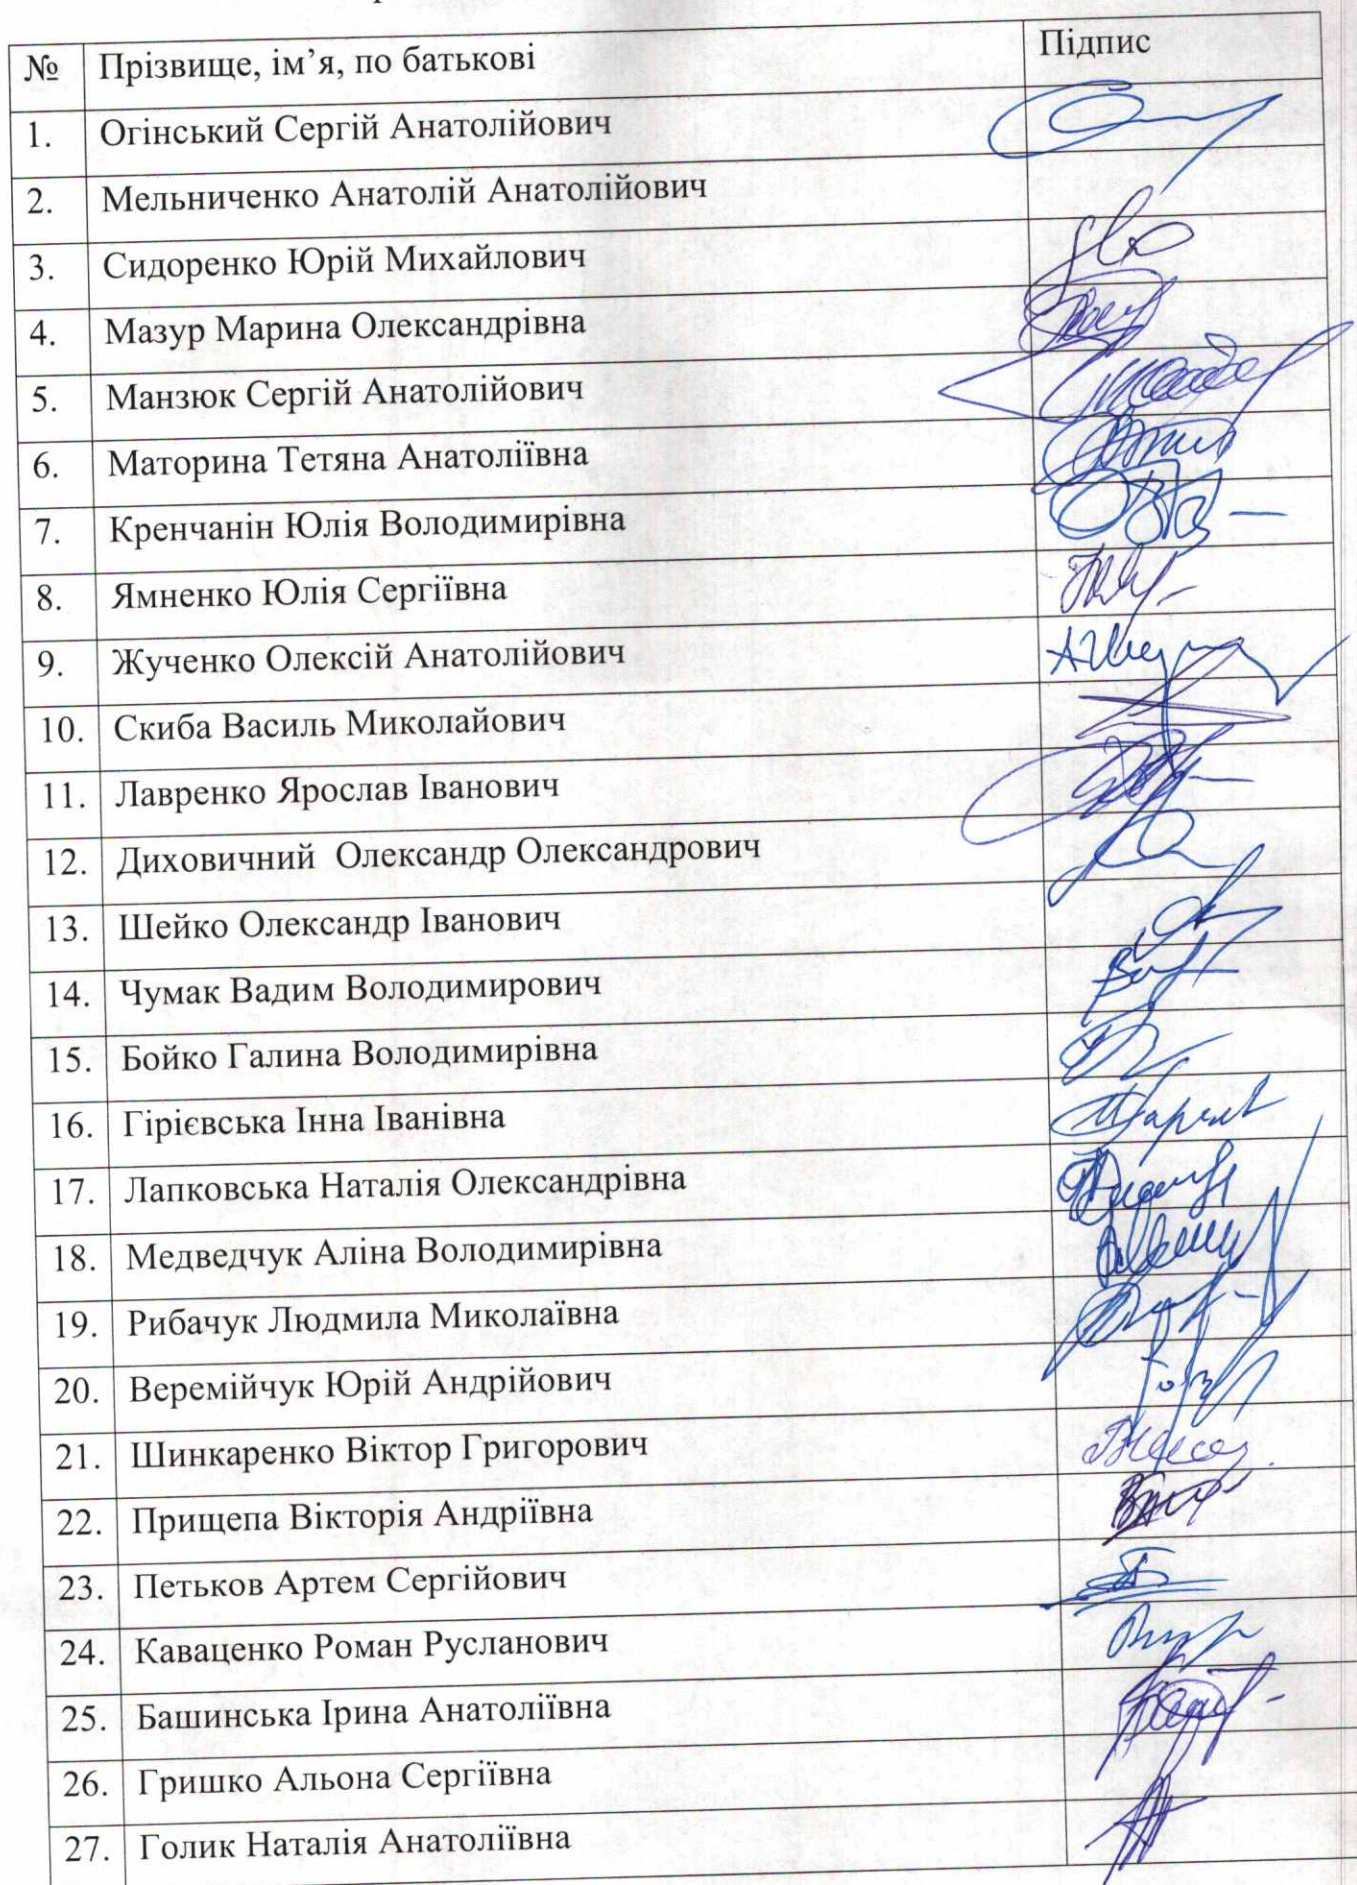 № Прізвище, ім’я, по батькові Підпис
1. Огінський Сергій Анатолійович
2. Мельниченко Анатолій Анатолійович
3. Сидоренко Юрій Михайлович
4. Мазур Марина Олександрівна
5. Манзюк Сергій Анатолійович
6. Маторина Тетяна Анатоліївна
7. Кренчанін Юлія Володимирівна
8. Ямненко Юлія Сергіївна
9. Жученко Олексій Анатолійович
10. Скиба Василь Миколайович
11. Лавренко Ярослав Іванович
12. Диховичний Олександр Олександрович
13. Шейко Олександр Іванович
14. Чумак Вадим Володимирович
15. Бойко Галина Володимирівна
16. Гірієвська Інна Іванівна
17. Лапковська Наталія Олександрівна
18. Медведчук Аліна Володимирівна
19. Рибачук Людмила Миколаївна
20. Веремійчук Юрій Андрійович
21. Шинкаренко Віктор Григорович
22. Прищепа Вікторія Андріївна
23. Петьков Артем Сергійович
24. Каваценко Роман Русланович
25. Башинська Ірина Анатоліївна
26. Гришко Альона Сергіївна
27. Голик Наталія Анатоліївна